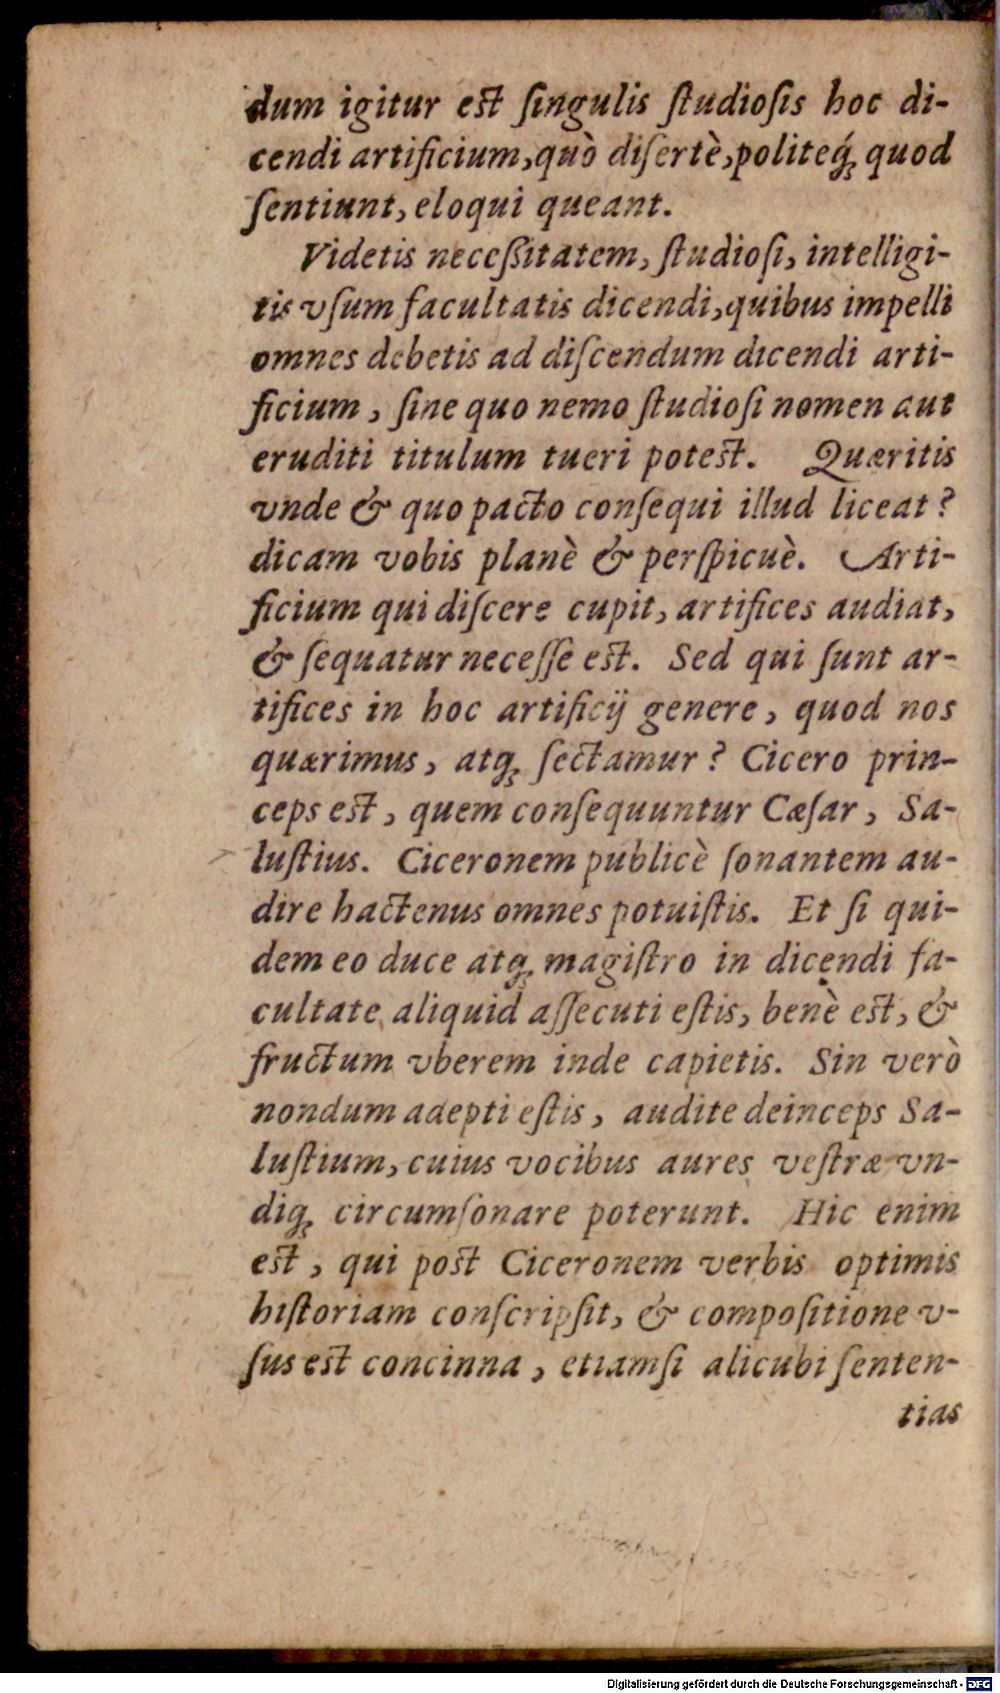 dum igitur est ſingulis ſtudioſis hoc di-
cendi artificium, quò diſertè, politeq́; quod
ſentiunt, eloqui queant.
Videtis neceſsitatem, ſtudioſi, intelligi-
tis vſum facultatis dicendi, quibus impelli
omnes debetis ad diſcendum dicendi arti-
ficium, ſine quo nemo ſtudioſi nomen aut
eruditi titulum tueri potest. Quæritis
vnde & quo pacto conſequi illud liceat?
dicam vobis planè & perſpicuè. Arti-
ficium qui diſcere cupit, artifices audiat,
& ſequatur neceſſe est. Sed qui ſunt ar-
tifices in hoc artificij genere, quod nos
quærimus, atq; ſectamur? Cicero prin-
ceps est, quem conſequuntur Cæſar, Sa-
luſtius. Ciceronem publicè ſonantem au-
dire hactenus omnes potuiſtis. Et ſi qui-
dem eo duce atq; magiſtro in dicendi fa-
cultate aliquid aſſecuti eſtis, benè est, &
fructum vberem inde capietis. Sin verò
nondum adepti eſtis, audite deinceps Sa-
luſtium, cuius vocibus aures veſtræ vn-
diq; circumſonare poterunt. Hic enim
est, qui post Ciceronem verbis optimis
hiſtoriam conſcripſit, & compoſitione v-
ſus est concinna, etiamſi alicubi ſenten-
tias
Digitalisierung gefördert durch die Deutsche Forschungsgemeinschaft - DFG